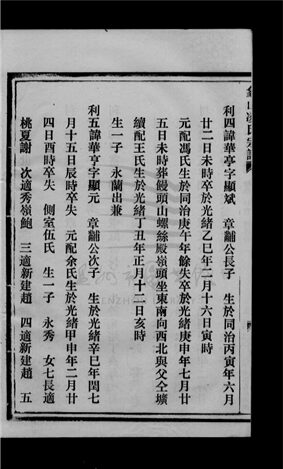 利四諱華亭字顯斌　章黼公長子　生於同治丙寅年六月
廿二日未時卒於光緒乙巳年二月十六日寅時
元配馮氏生於同治庚午年餘失卒於光緒庚申年七月廿
五日未時葬饅頭山螺絲殿嶺頭坐東南向西北與父仝壙
續配王氏生於光緒丁丑年正月十二日亥時
生一子　永蘭出兼
利五諱華亨字顯元　章黼公次子　生於光緒辛巳年閏七
月十五日辰時卒失　元配余氏生於光緒甲申年二月廿
四日酉時卒失　側室伍氏　生一子　永秀　女七長適
桃夏謝　次適秀嶺鮑　三適新建趙　四適新建趙　五